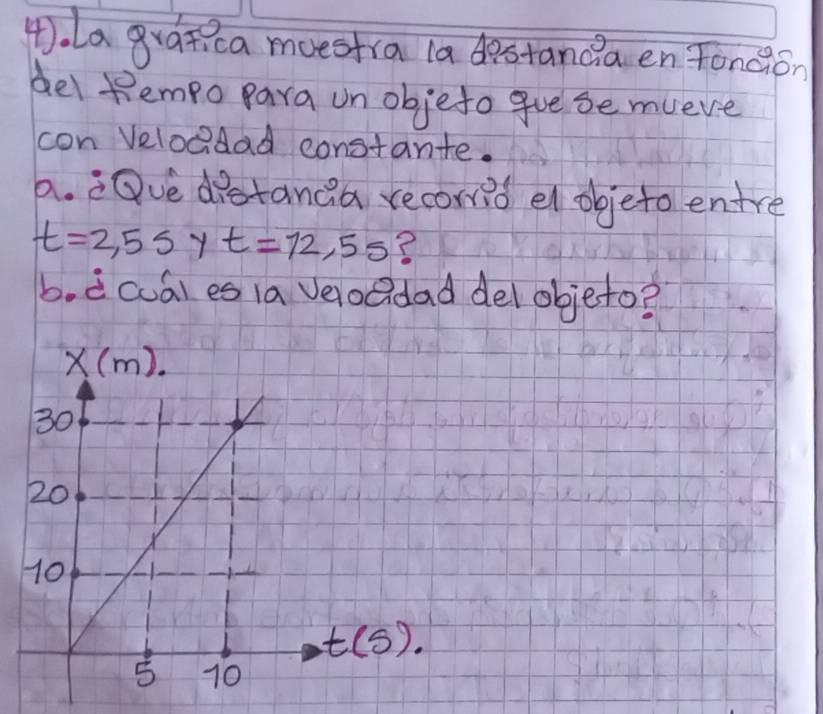 4). La gráfica muestra la distancia en Función
del tiempo para un objeto que se mueve
con velocidad constante.
a. ¿Qué distancia recorrió el objeto entre
t=2,5 s y t=12,5 s?
b. ¿cuál es la velocidad del objeto?
X(m).
30
20
10
t(s).
5 10